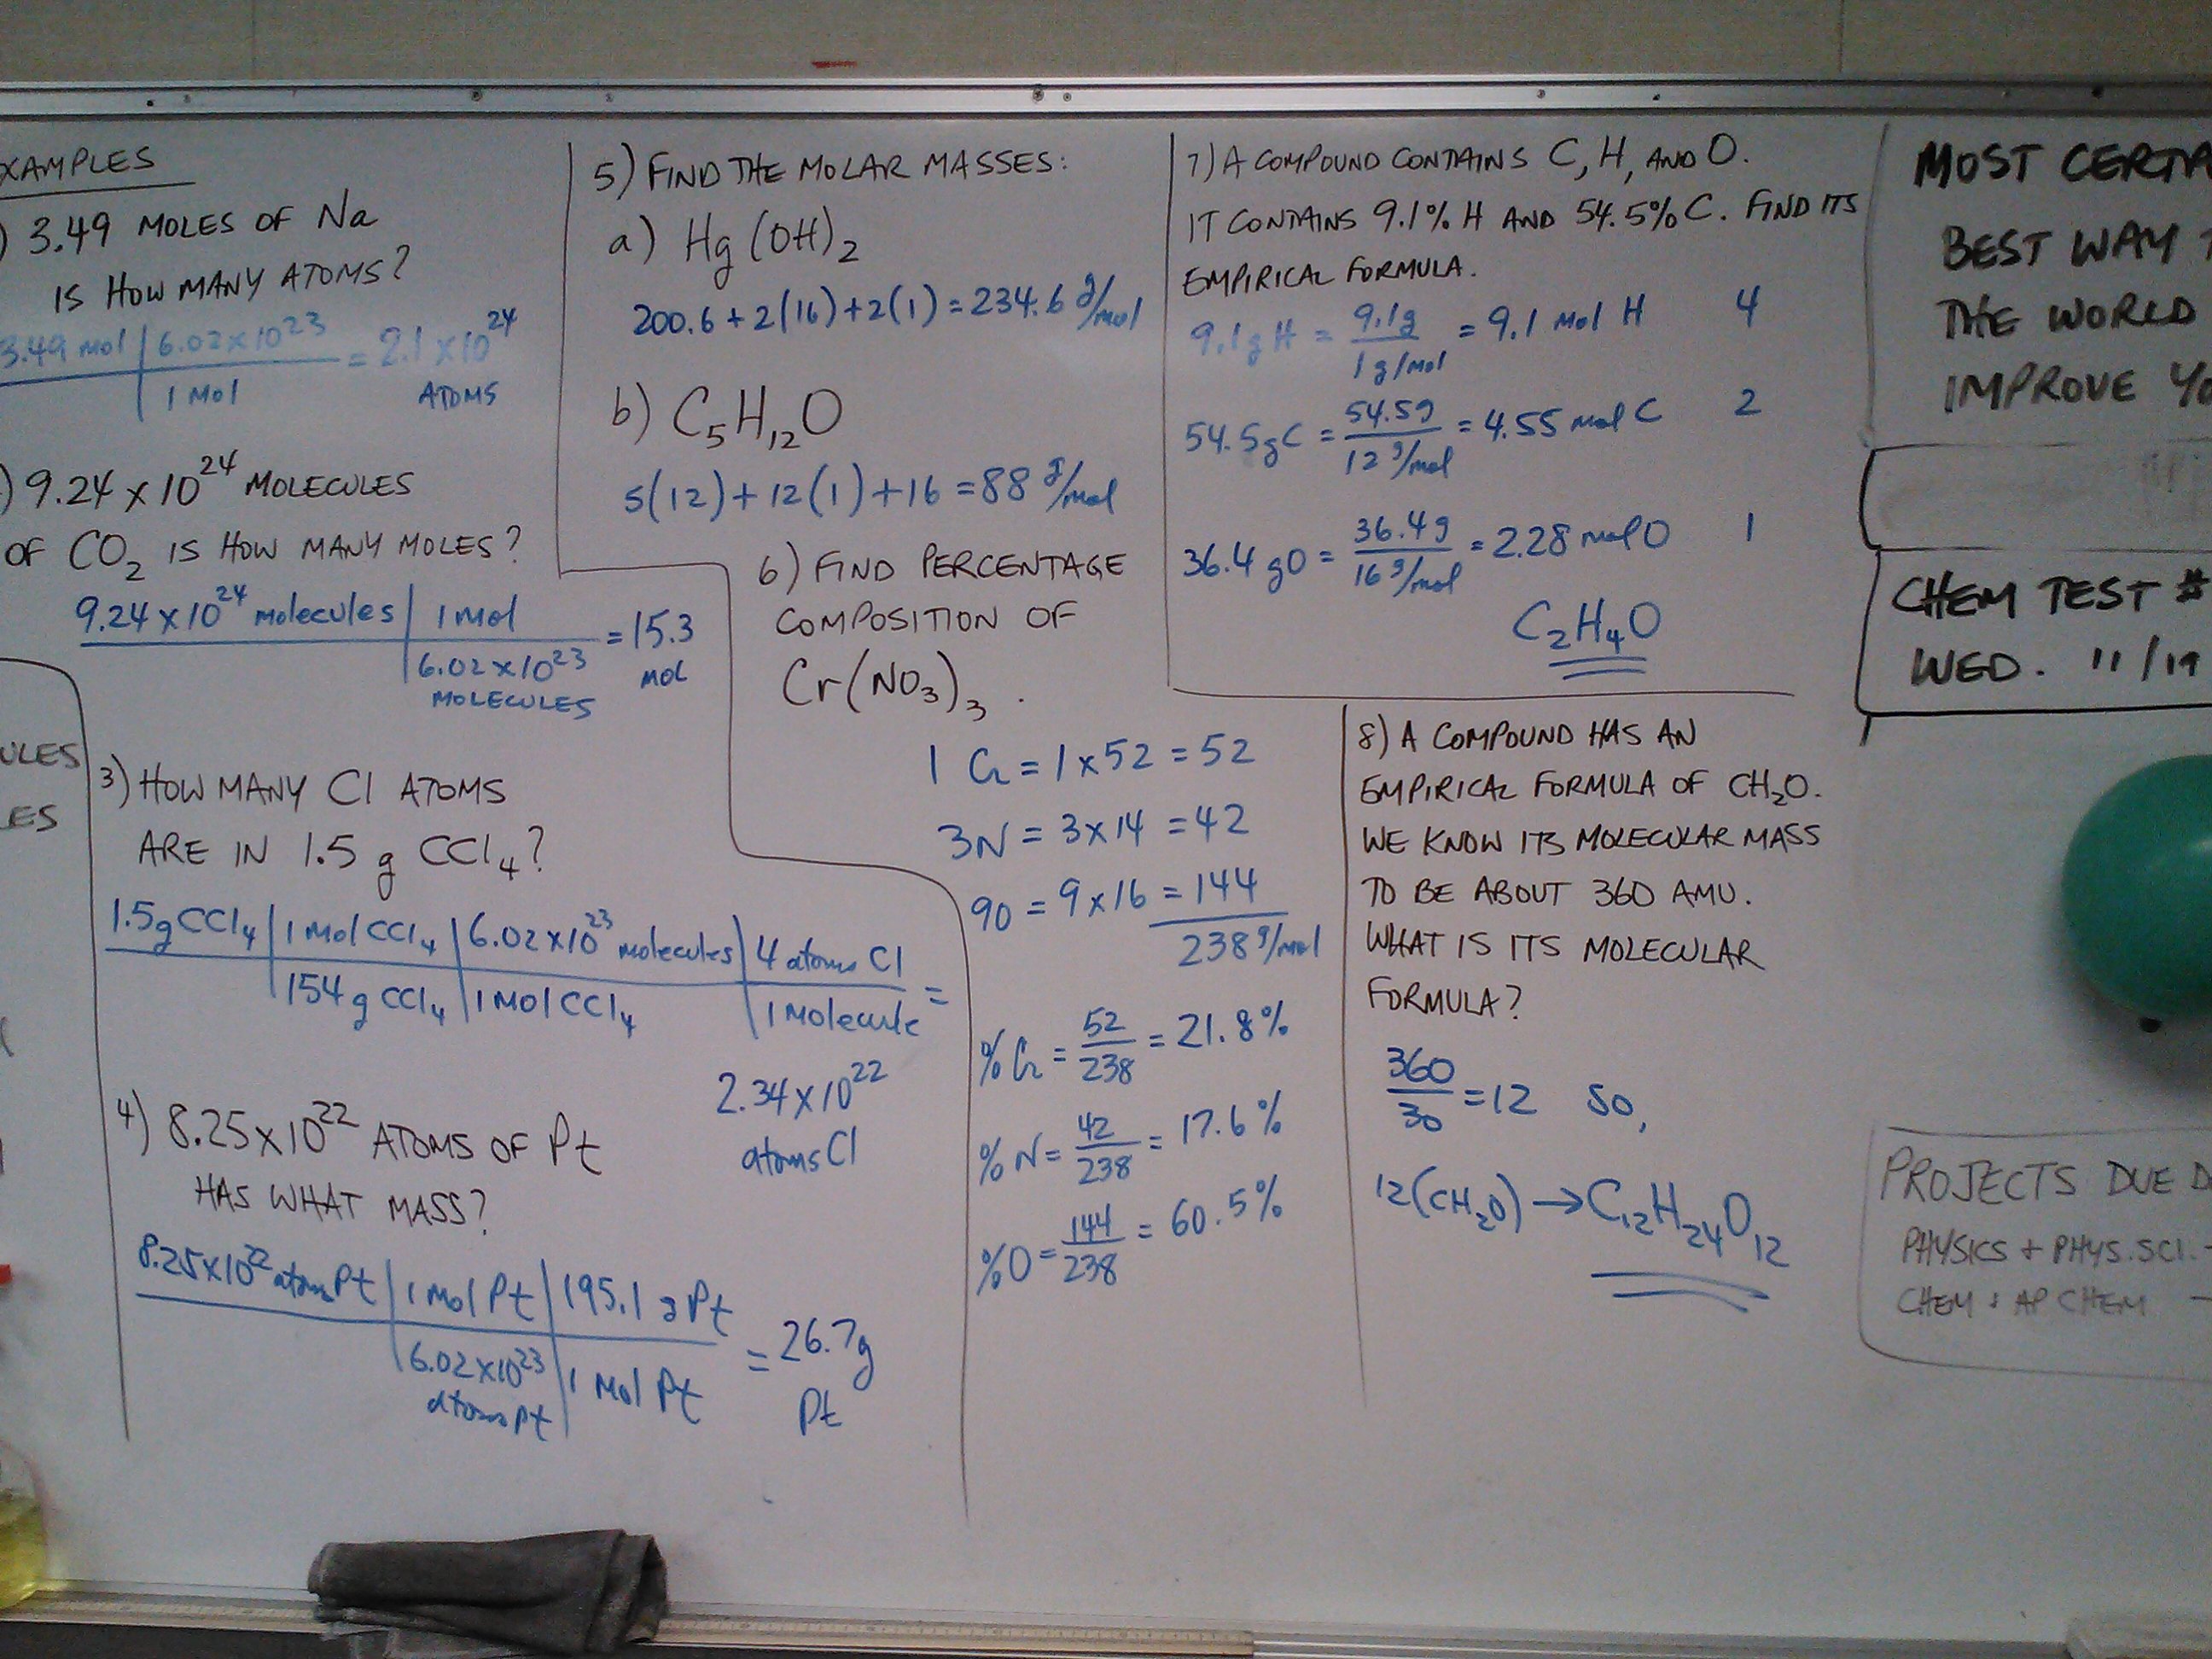 XAMPLES
) 3.49 MOLES OF Na
IS HOW MANY ATOMS?
3.49 mol | 6.02×10²³ = 2.1×10²⁴
1 Mol ATOMS
) 9.24×10²⁴ MOLECULES
OF CO₂ IS HOW MANY MOLES?
9.24×10²⁴ molecules | 1 mol = 15.3
6.02×10²³ MOL
MOLECULES
ULES
ES
3) HOW MANY Cl ATOMS
ARE IN 1.5 g CCl₄?
1.5g CCl₄ | 1 Mol CCl₄ | 6.02×10²³ molecules | 4 atoms Cl
154 g CCl₄ | 1 MOl CCl₄ | 1 Molecule =
2.34×10²²
atoms Cl
4) 8.25×10²² ATOMS OF Pt
HAS WHAT MASS?
8.25×10²² atoms Pt | 1 Mol Pt | 195.1 g Pt = 26.7g
6.02×10²³ | 1 Mol Pt Pt
atoms Pt
5) FIND THE MOLAR MASSES:
a) Hg(OH)₂
200.6 + 2(16) + 2(1) = 234.6 g/mol
b) C₅H₁₂O
5(12) + 12(1) + 16 = 88 g/mol
6) FIND PERCENTAGE
COMPOSITION OF
Cr(NO₃)₃.
1 Cr = 1×52 = 52
3N = 3×14 = 42
9O = 9×16 = 144
238 g/mol
%Cr = 52/238 = 21.8%
%N = 42/238 = 17.6%
%O = 144/238 = 60.5%
7) A COMPOUND CONTAINS C, H, AND O.
IT CONTAINS 9.1% H AND 54.5% C. FIND ITS
EMPIRICAL FORMULA.
9.1g H = 9.1g / 1 g/mol = 9.1 Mol H 4
54.5g C = 54.5g / 12 g/mol = 4.55 mol C 2
36.4 g O = 36.4g / 16 g/mol = 2.28 mol O 1
C₂H₄O
8) A COMPOUND HAS AN
EMPIRICAL FORMULA OF CH₂O.
WE KNOW ITS MOLECULAR MASS
TO BE ABOUT 360 AMU.
WHAT IS ITS MOLECULAR
FORMULA?
360/30 = 12 so,
12(CH₂O) → C₁₂H₂₄O₁₂
MOST CERTA
BEST WAY T
THE WORLD
IMPROVE YO
CHEM TEST #
WED. 11/19
PROJECTS DUE D
PHYSICS + PHYS. SCI. -
CHEM & AP CHEM -